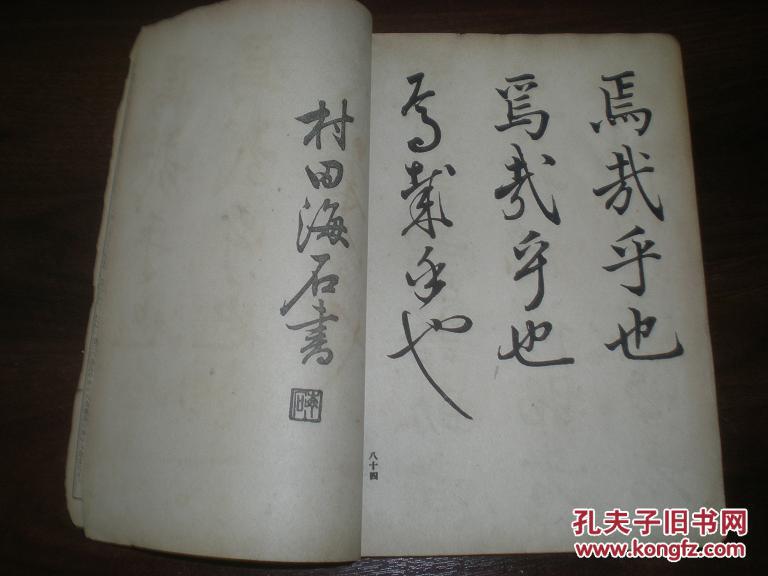 焉哉乎也
焉哉乎也
焉哉乎也
八十四
村田海石書
孔夫子旧书网
www.kongfz.com